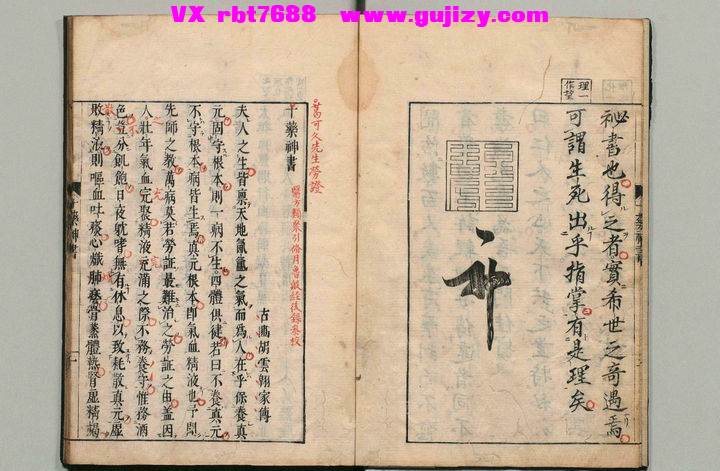 VX rbt7688   www.gujizy.com
理一
作望
祕書也得之者實希世之奇遇焉
可謂生死出乎指掌有是理矣
十藥神書
葛可久先生勞證
古鄱胡雲翱家傳
夫人之生皆稟天地氤氳之氣而爲人在乎保養真
元固守根本則一病不生四體俱健若曰不養真元
不守根本病皆生焉真元根本卽氣血精液也予聞
先師之教萬病莫若勞証最難治之勞証之由盖因
人壯年氣血完聚精液充滿之際不務養守惟務酒
色豈分飢飽日夜躭嗜無有休息以致耗散真元虛
敗精液則嘔血吐痰心熾肺
體熱腎虛精竭
十藥神書